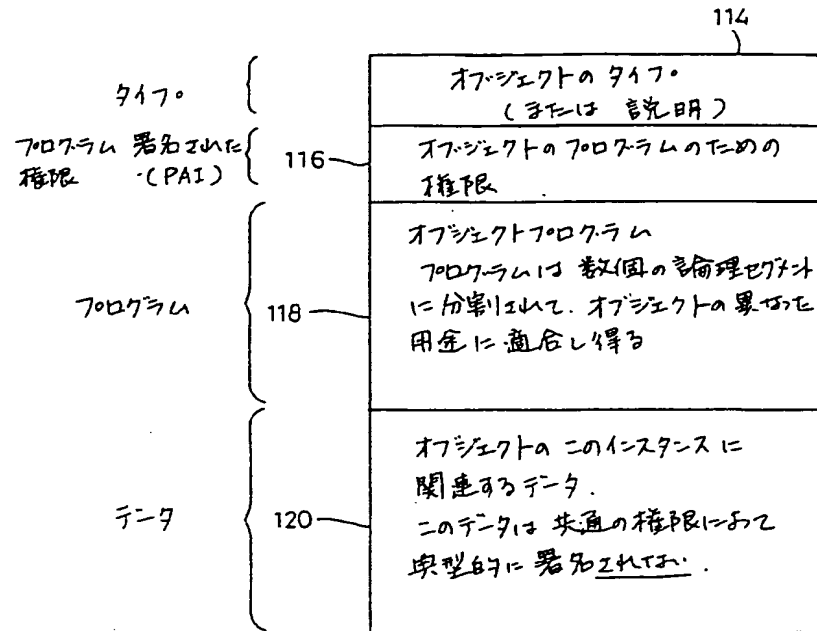 114
タイプ
オブジェクトのタイプ
(または 説明)
プログラム 署名された
権限 (PAI)
116
オブジェクトのプログラムのための
権限.
プログラム
118
オブジェクトプログラム
プログラムは 数個の論理セグメント
に分割されて、オブジェクトの異なった
用途に適合し得る
データ
120
オブジェクトの このインスタンスに
関連するデータ.
このデータは 共通の権限によって
典型的に署名されない.